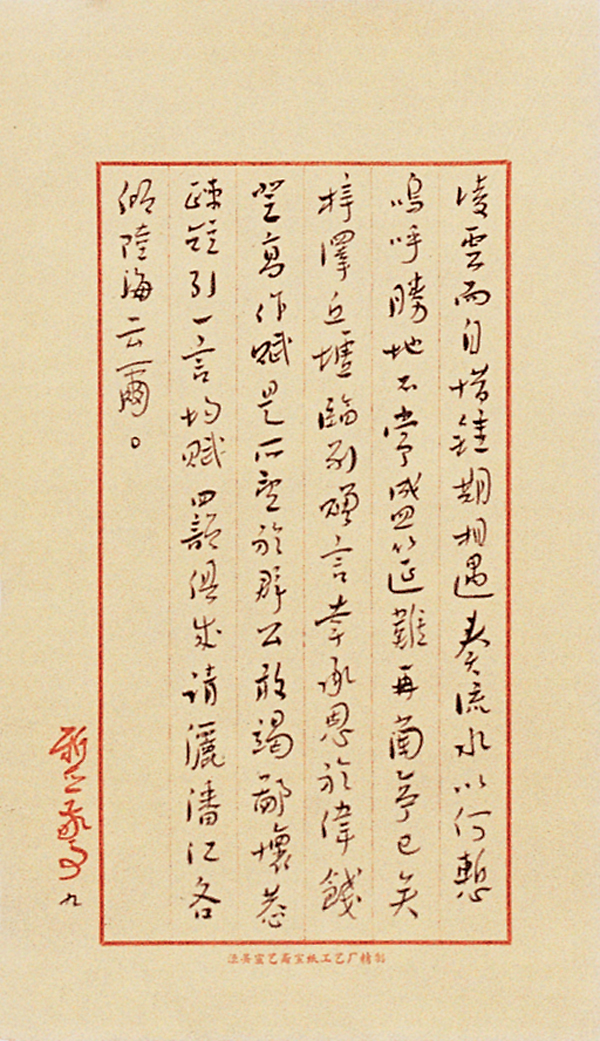 凌雲而自惜鍾期相遇奏流水以何慙
嗚呼勝地不常盛筵難再蘭亭已矣
梓澤丘墟臨別贈言幸承恩於偉餞
登高作賦是所望於群公敢竭鄙懷恭
疎短引一言均賦四韻俱成請灑潘江各
傾陸海云爾。
九
泾县宣艺斋宣纸工艺厂精制